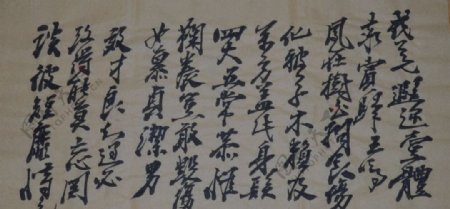 戎羌遐迩壹體
率賓歸王鳴
鳳在樹白駒食場
化被草木賴及
萬方蓋此身髮
四大五常恭惟
鞠養豈敢毀傷
女慕貞潔男
效才良知過必
改得能莫忘罔
談彼短靡恃己